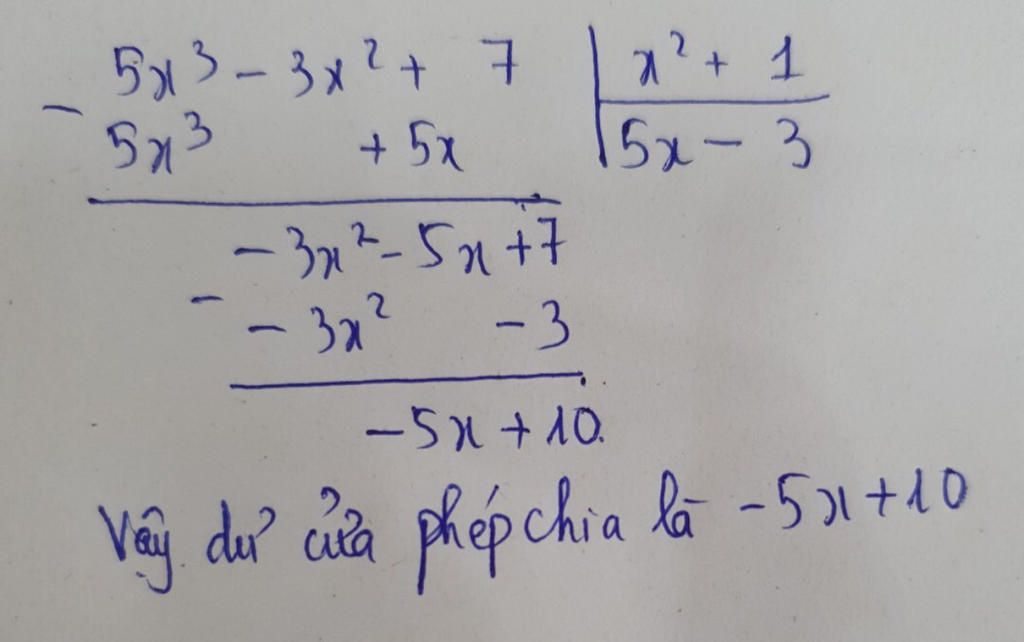 5x³ - 3x² + 7 | x² + 1
- 5x³ + 5x | 5x - 3
-3x² - 5x + 7
- -3x² - 3
-5x + 10.
Vậy dư của phép chia là -5x + 10